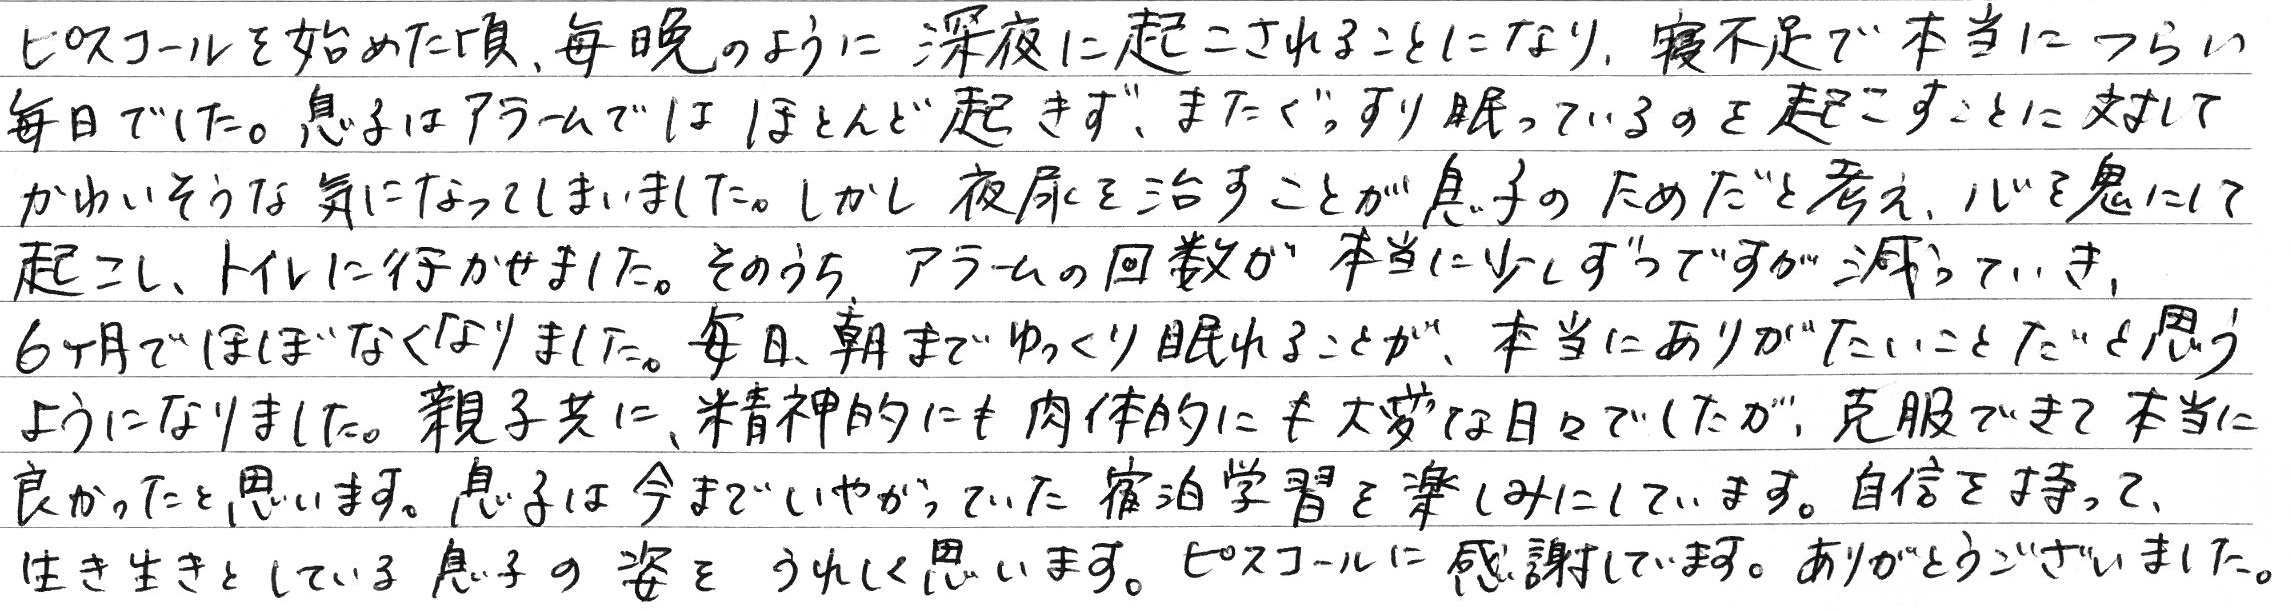 ピスコールを始めた頃、毎晩のように深夜に起こされることになり、寝不足で本当につらい
毎日でした。息子はアラームではほとんど起きず、またぐっすり眠っているのを起こすことに対して
かわいそうな気になってしまいました。しかし夜尿を治すことが息子のためだと考え、心を鬼にして
起こし、トイレに行かせました。そのうち、アラームの回数が本当に少しずつですが減っていき、
6ヶ月でほぼなくなりました。毎日、朝までゆっくり眠れることが、本当にありがたいことだと思う
ようになりました。親子共に、精神的にも肉体的にも大変な日々でしたが、克服できて本当に
良かったと思います。息子は今までいやがっていた宿泊学習を楽しみにしています。自信を持って、
生き生きとしている息子の姿をうれしく思います。ピスコールに感謝しています。ありがとうございました。